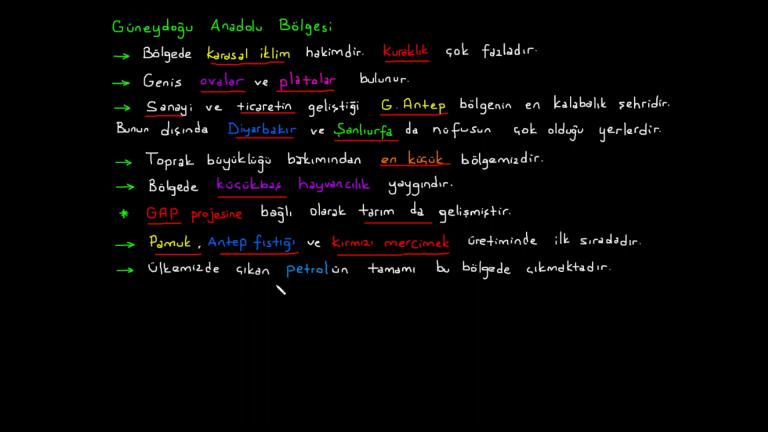 Güneydoğu Anadolu Bölgesi
→ Bölgede karasal iklim hakimdir. Kuraklık çok fazladır.
→ Genis ovalar ve platolar bulunur.
→ Sanayi ve ticaretin geliştiği G. Antep bölgenin en kalabalık şehridir.
Bunun dışında Diyarbakır ve Şanlıurfa da nüfusun çok olduğu yerlerdir.
→ Toprak büyüklüğü bakımından en küçük bölgemizdir.
→ Bölgede küçükbaş hayvancılık yaygındır.
* GAP projesine bağlı olarak tarım da gelişmiştir.
→ Pamuk, Antep fıstığı ve kırmızı mercimek üretiminde ilk sıradadır.
→ Ülkemizde çıkan petrolün tamamı bu bölgede çıkmaktadır.